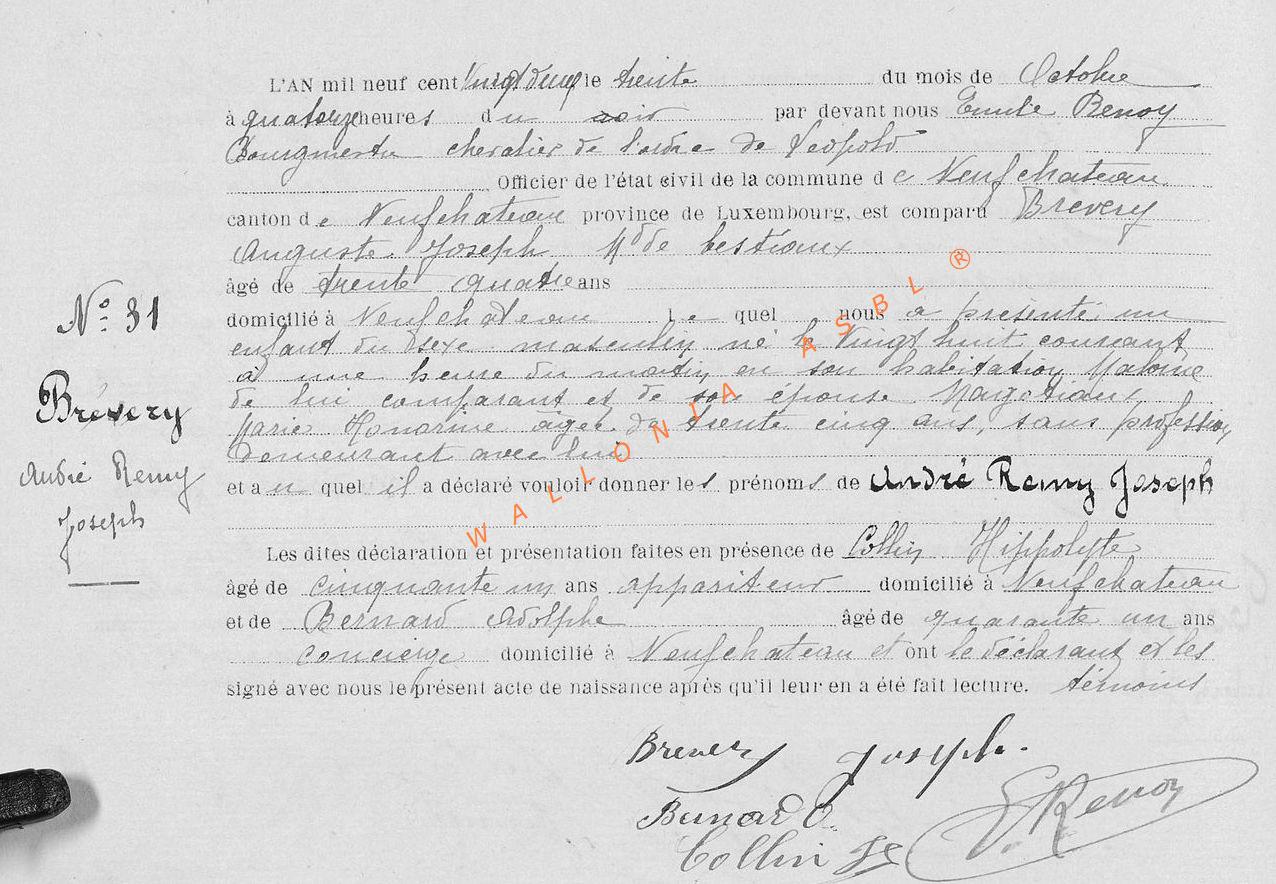 L'AN mil neuf cent vingt deux le trente du mois de Octobre
à quatorze heures du soir par devant nous Emile Renoy
Bourgmestre chevalier de l'ordre de Léopold
Officier de l'état civil de la commune de Neufchateau
canton de Neufchateau province de Luxembourg, est comparu Brevery
Auguste Joseph, Md de bestiaux
âgé de trente quatre ans
domicilié à Neufchateau lequel nous a présenté un
enfant du sexe masculin né le vingt huit courant
à une heure du matin en son habitation
de lui comparant et de son épouse
Marie Honorine âgée de trente cinq ans, sans profession
demeurant avec lui
et auquel il a déclaré vouloir donner les prénoms de André Remy Joseph
Les dites déclaration et présentation faites en présence de Collin Hippolyte
âgé de cinquante un ans appariteur domicilié à Neufchateau
et de Bernard Adolphe âgé de quarante un ans
concierge domicilié à Neufchateau et ont le déclarant et les
signé avec nous le présent acte de naissance après qu'il leur en a été fait lecture. témoins
No 31
Brévery
André Remy
Joseph
WALLONIA ASBL ®
Brevery Joseph.
Bernard
Collin
E Renoy